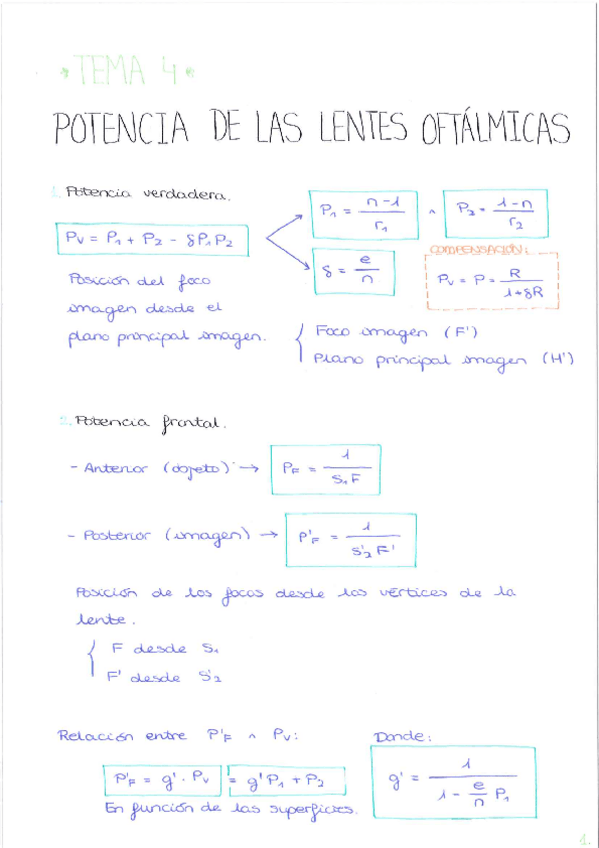 * TEMA 4 *
POTENCIA DE LAS LENTES OFTÁLMICAS
1. Potencia verdadera.
Pv = P1 + P2 - δP1P2
P1 = n-1 / r1 ^ P2 = 1-n / r2
δ = e / n
COMPENSACIÓN:
Pv = P = R / 1+δR
Posición del foco
imagen desde el
plano principal imagen.
{ Foco imagen (F')
Plano principal imagen (H')
2. Potencia frontal.
- Anterior (objeto) → PF = 1 / S1F
- Posterior (imagen) → P'F = 1 / S'2F'
Posición de los focos desde los vértices de la
lente.
{ F desde S1
F' desde S'2
Relación entre P'F ^ Pv:
Donde:
P'F = g' · Pv = g'P1 + P2
g' = 1 / 1 - e/n P1
En función de las superficies.
1.